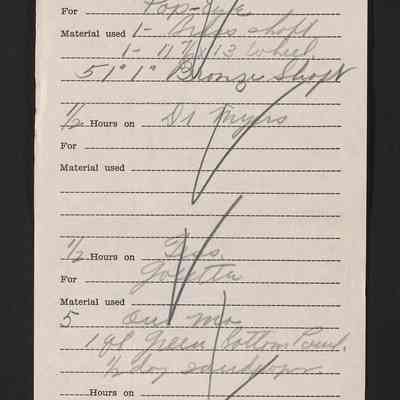 For Pop-eye
Material used 1- Brass shaft
1- 11 1/2 x 13 Wheel
51" 1" Bronze Shaft
1/2 Hours on Dr Myers
For
Material used
1/2 Hours on
For
Material used
5 Our Mo
1 qt Green Bottom Paint.
1/2 doz sandpaper
Hours on